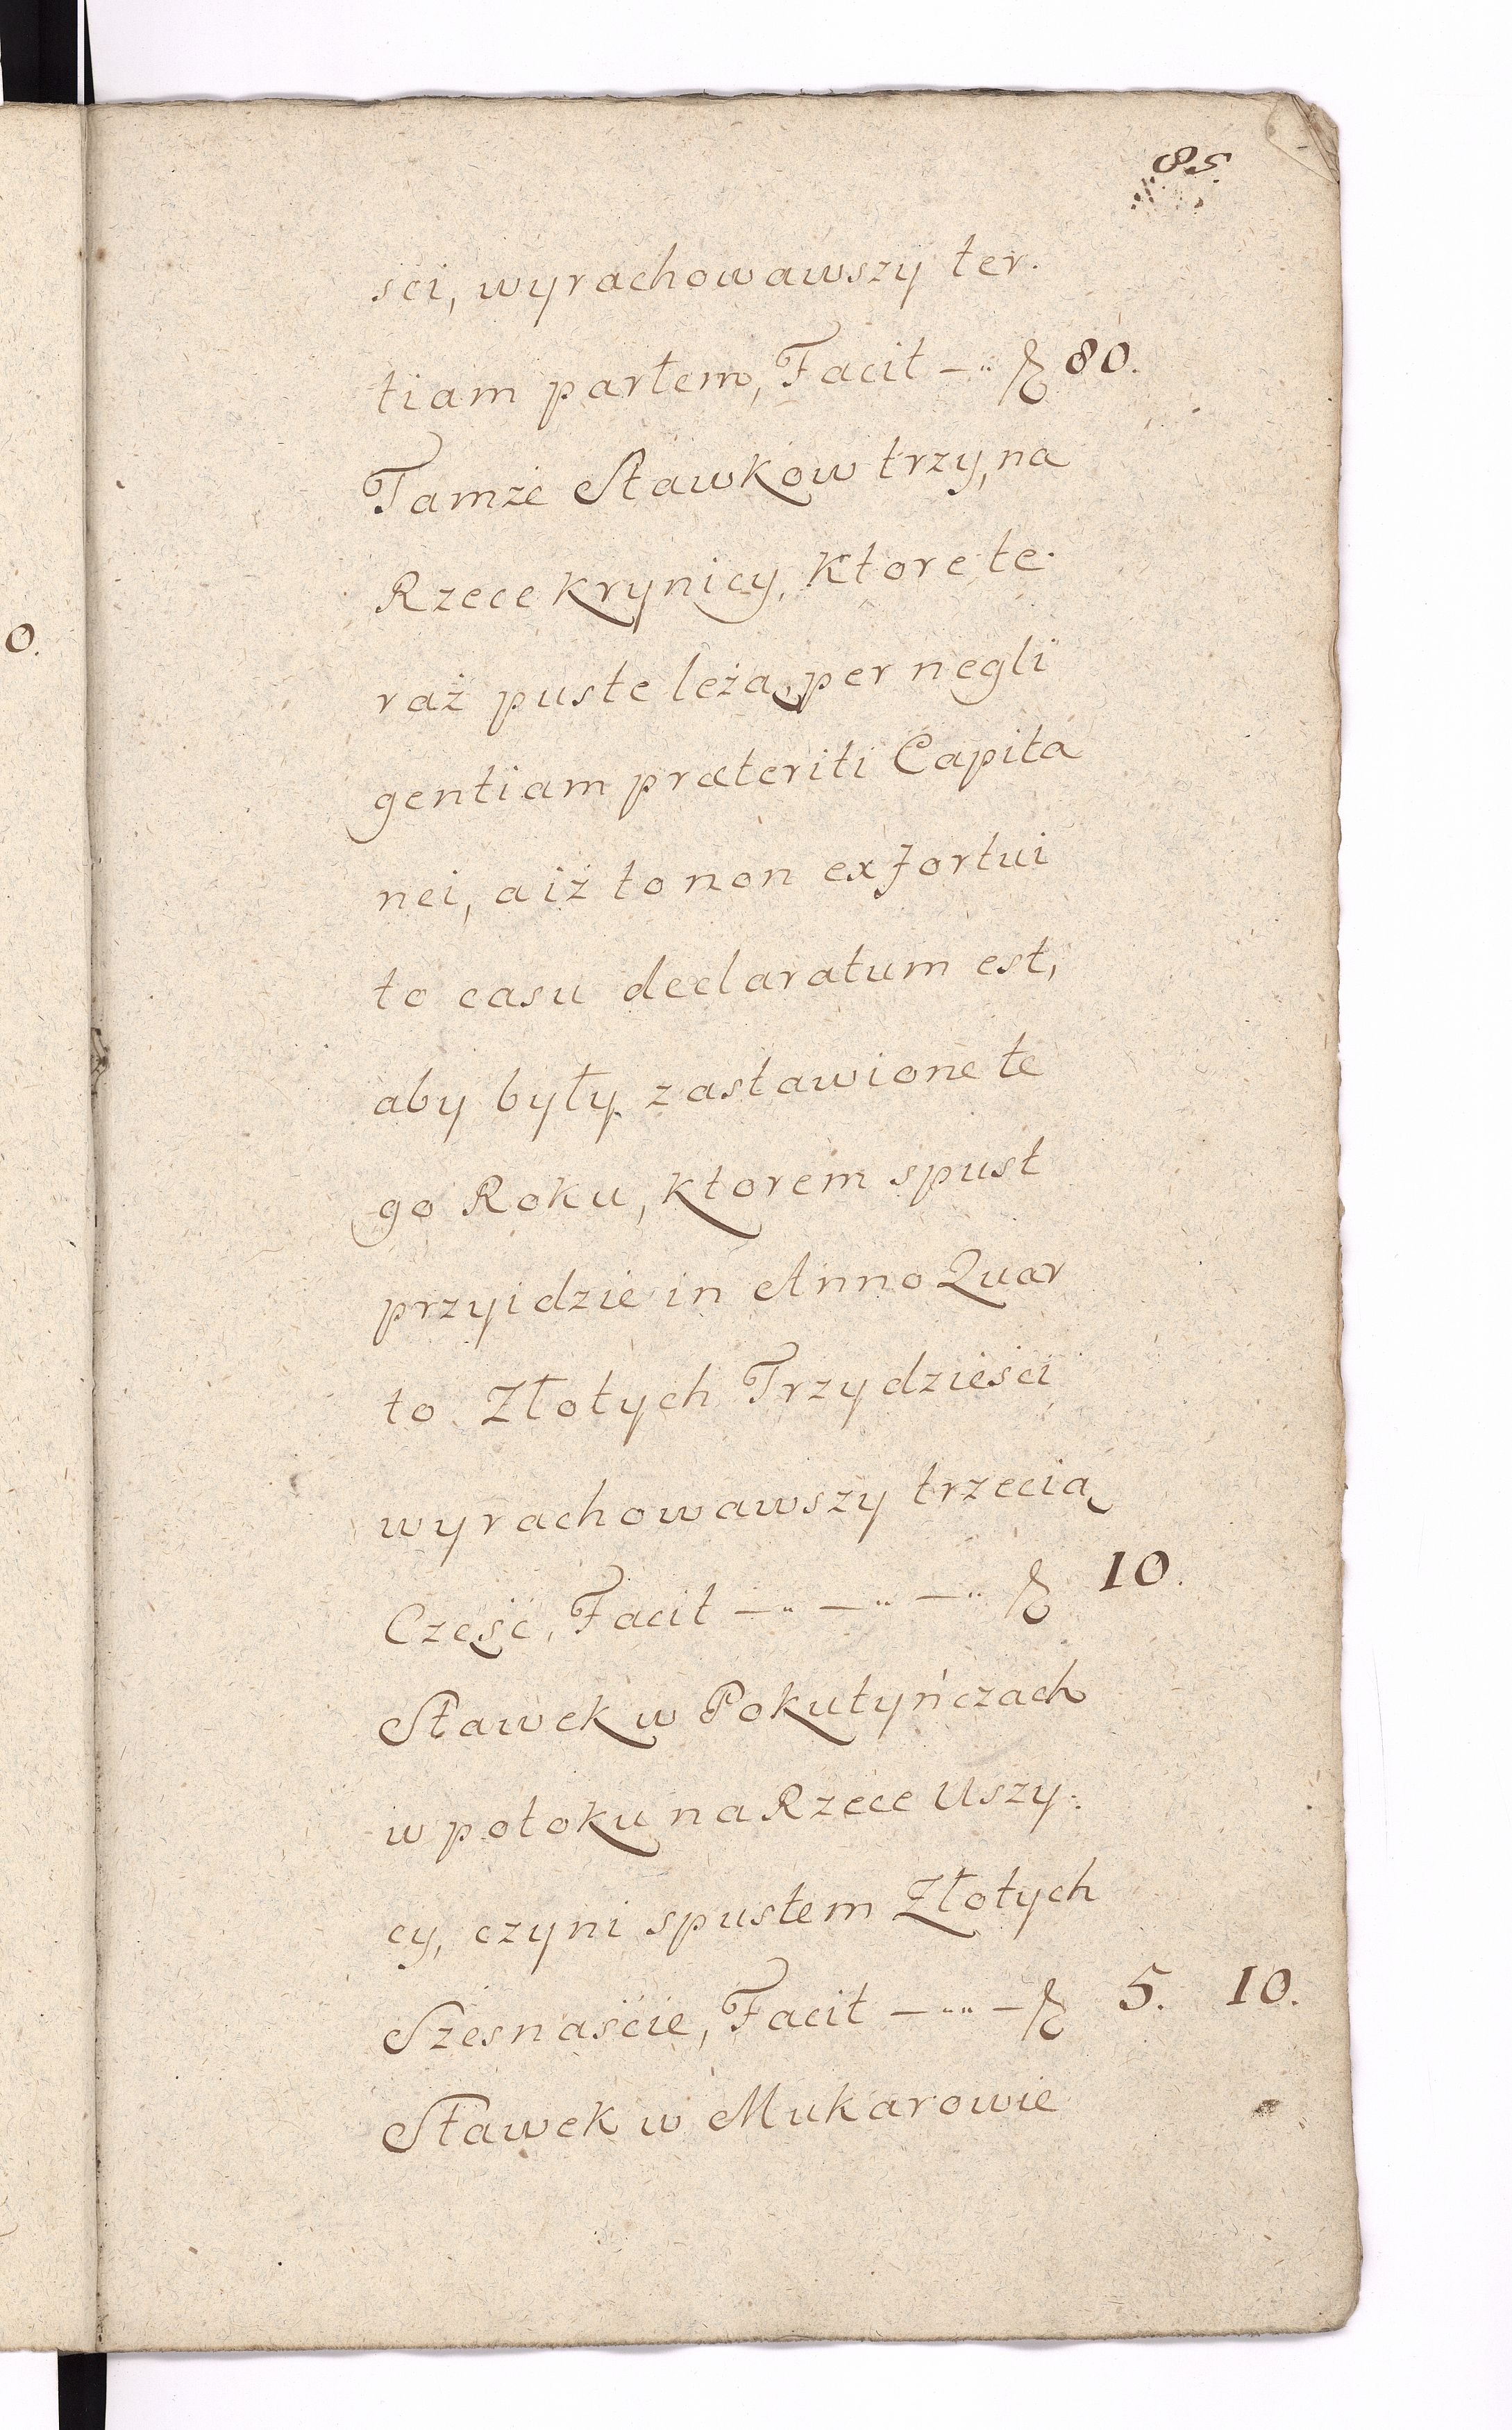 85.
sci, wyrachowawszy ter.
tiam partem, Facit — ·· 80.
Tamże Stawkow trzy, na
Rzece Krynicy, Ktore te.
raż puste leżą, per negli
gentiam præteriti Capita
nei, a iż to non ex fortui
to casu declaratum est,
aby były zastawione te
go Roku, Ktorem spust
przyidzie in Anno Quar
to Złotych Trzydzieści
wyrachowawszy trzecią
Część, Facit — ·· — ·· — ·· 10.
Stawek w Pokutyńczach
w potoku na Rzece Uszy.
cy, czyni spustem Złotych
Szesnaście, Facit — ···· — 5. 10.
Stawek w Mukarowie
0.